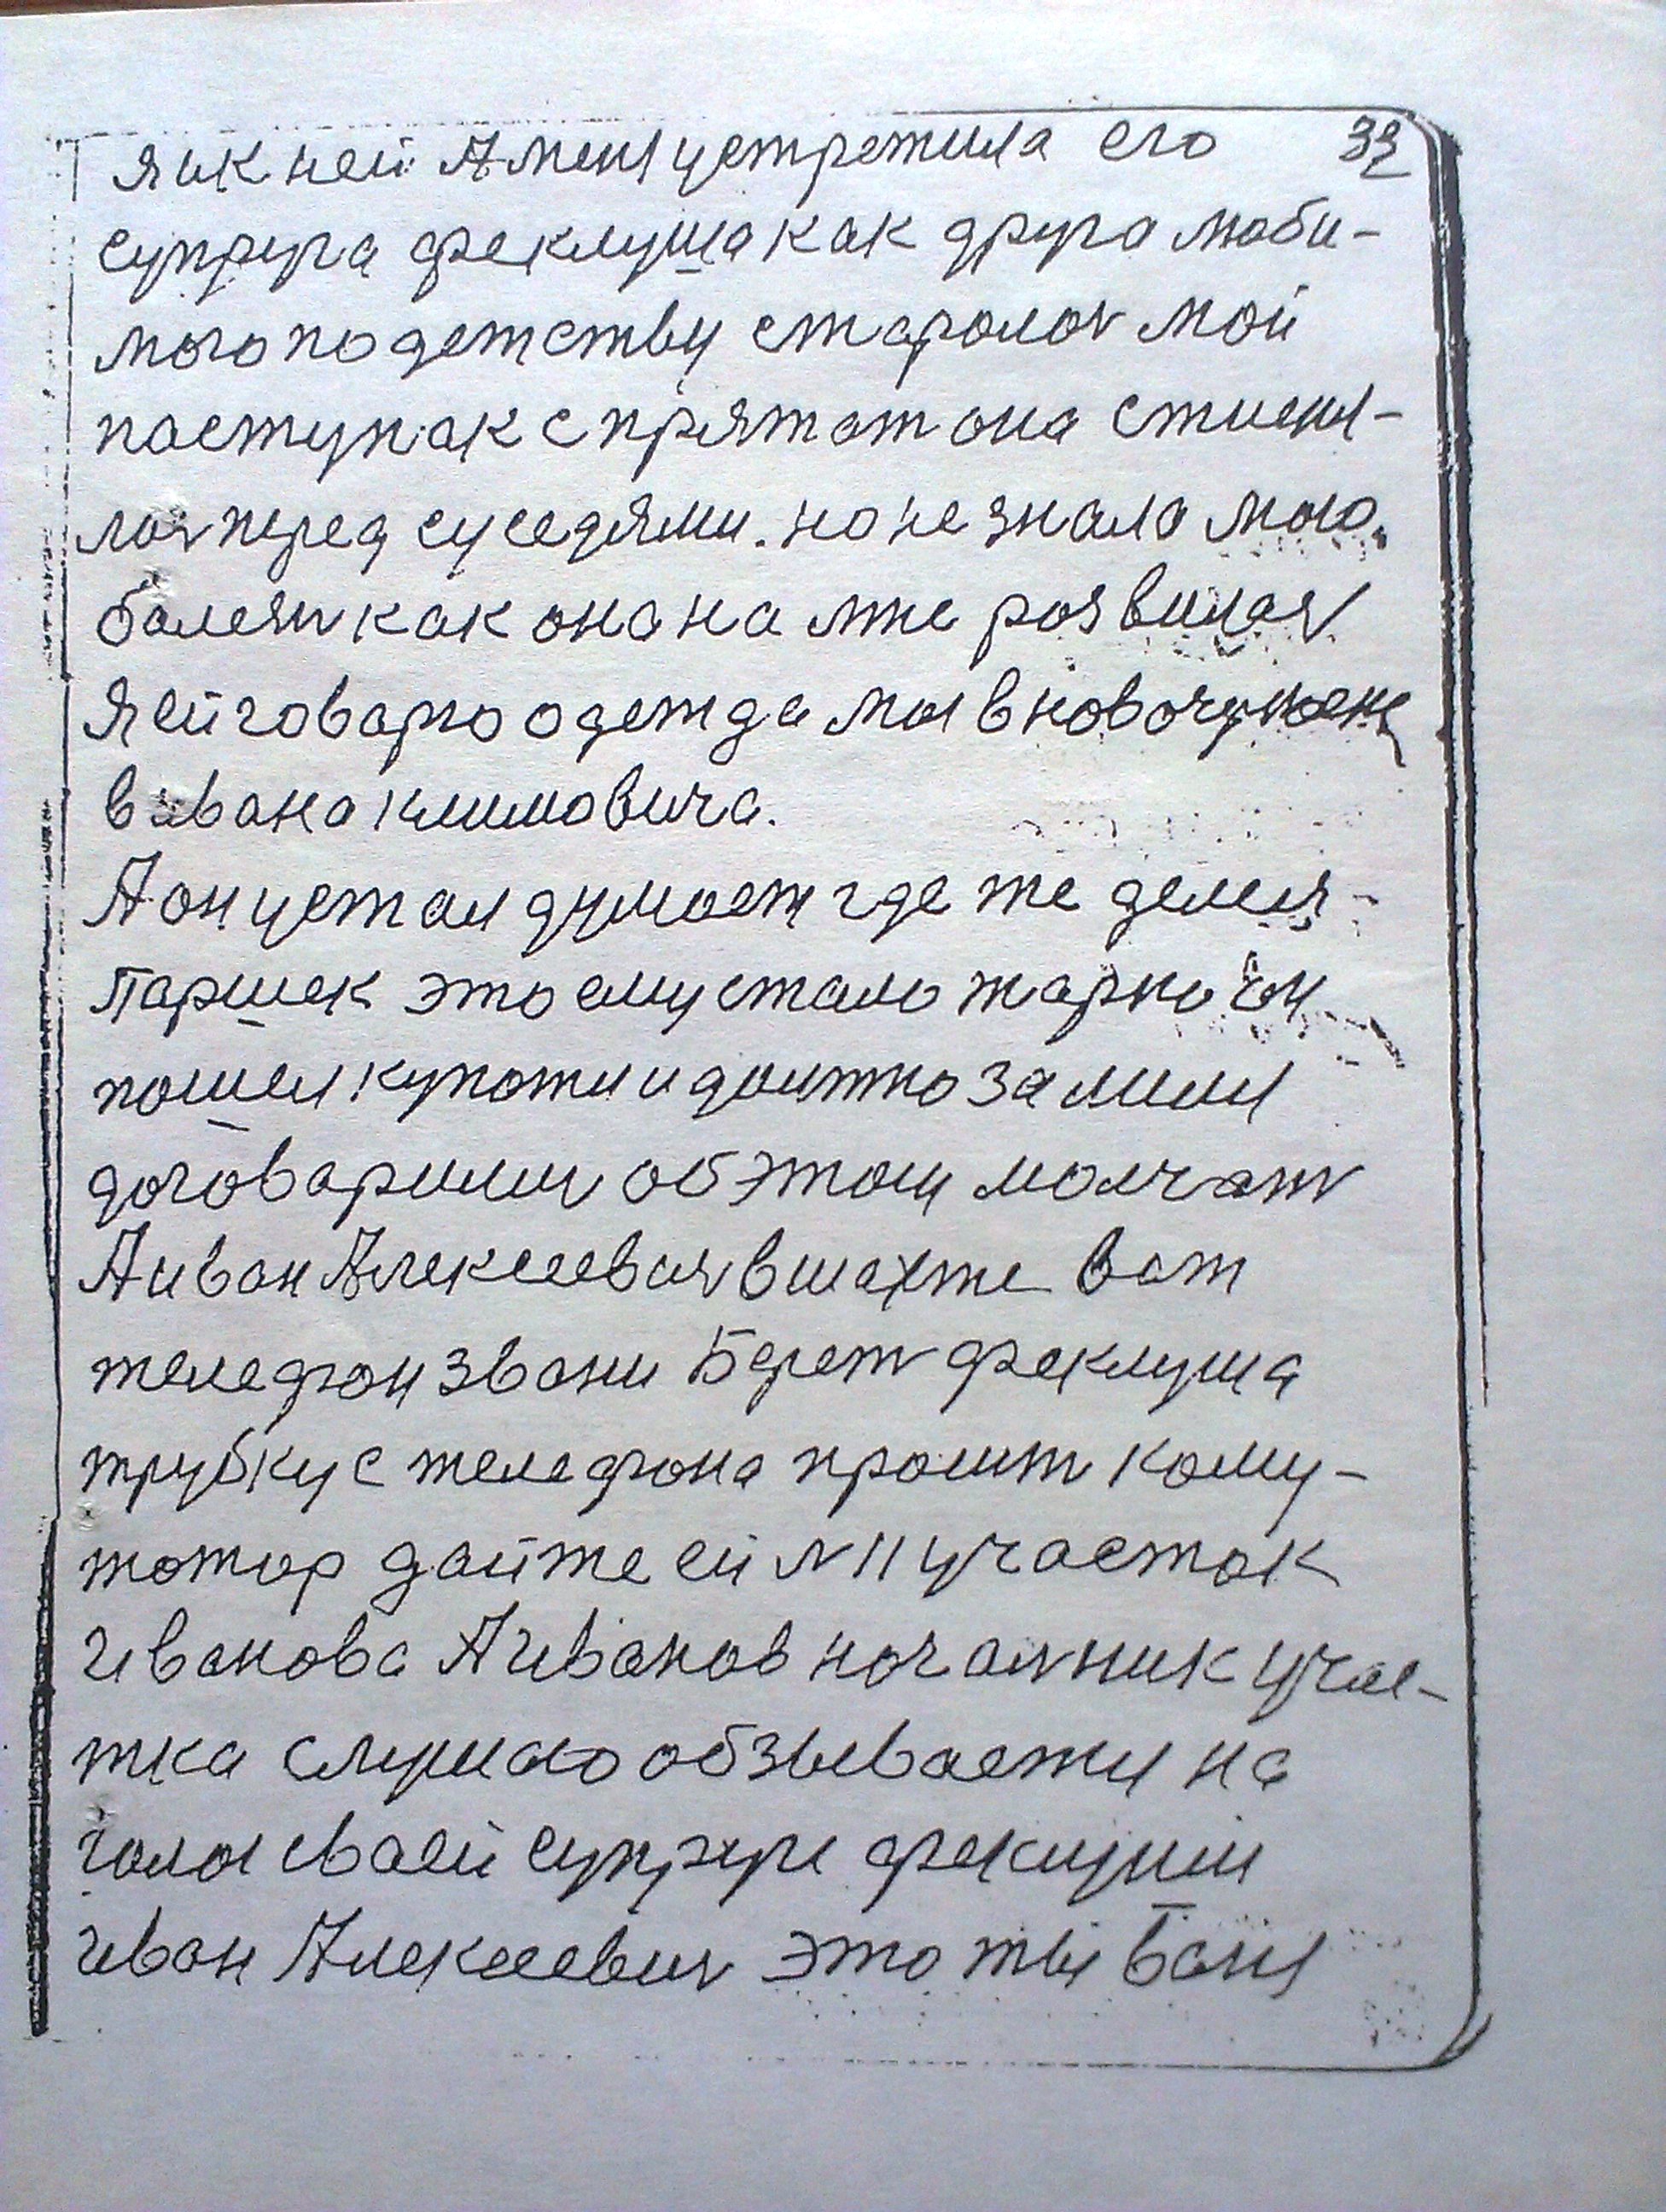 я ик ней А меня устретила его 33
супруга феклуша как друга люби-
мого по детству старолон мой
паступак спрятат она стиеня-
лоя перед суседями. но не знала мого
балезн как она на мне розвилая
Я ей говарю одежда моя в новочужене
в ивана климовича.
А он устал думает где же делея
Паршек это ему стало жарко он
пошел купатця идолжно за мыли
договарилия об этом молчат
А иван Алексеевия в шахте ват
телефон звани Берет феклуша
трубку с телефона прошит кому-
татор дайте ей N 11 участок
иванова А иванов началник учас-
тка слушаю обзываетця на
голас сваей супруги феклуши
иван Алексеевич это ты Ваня